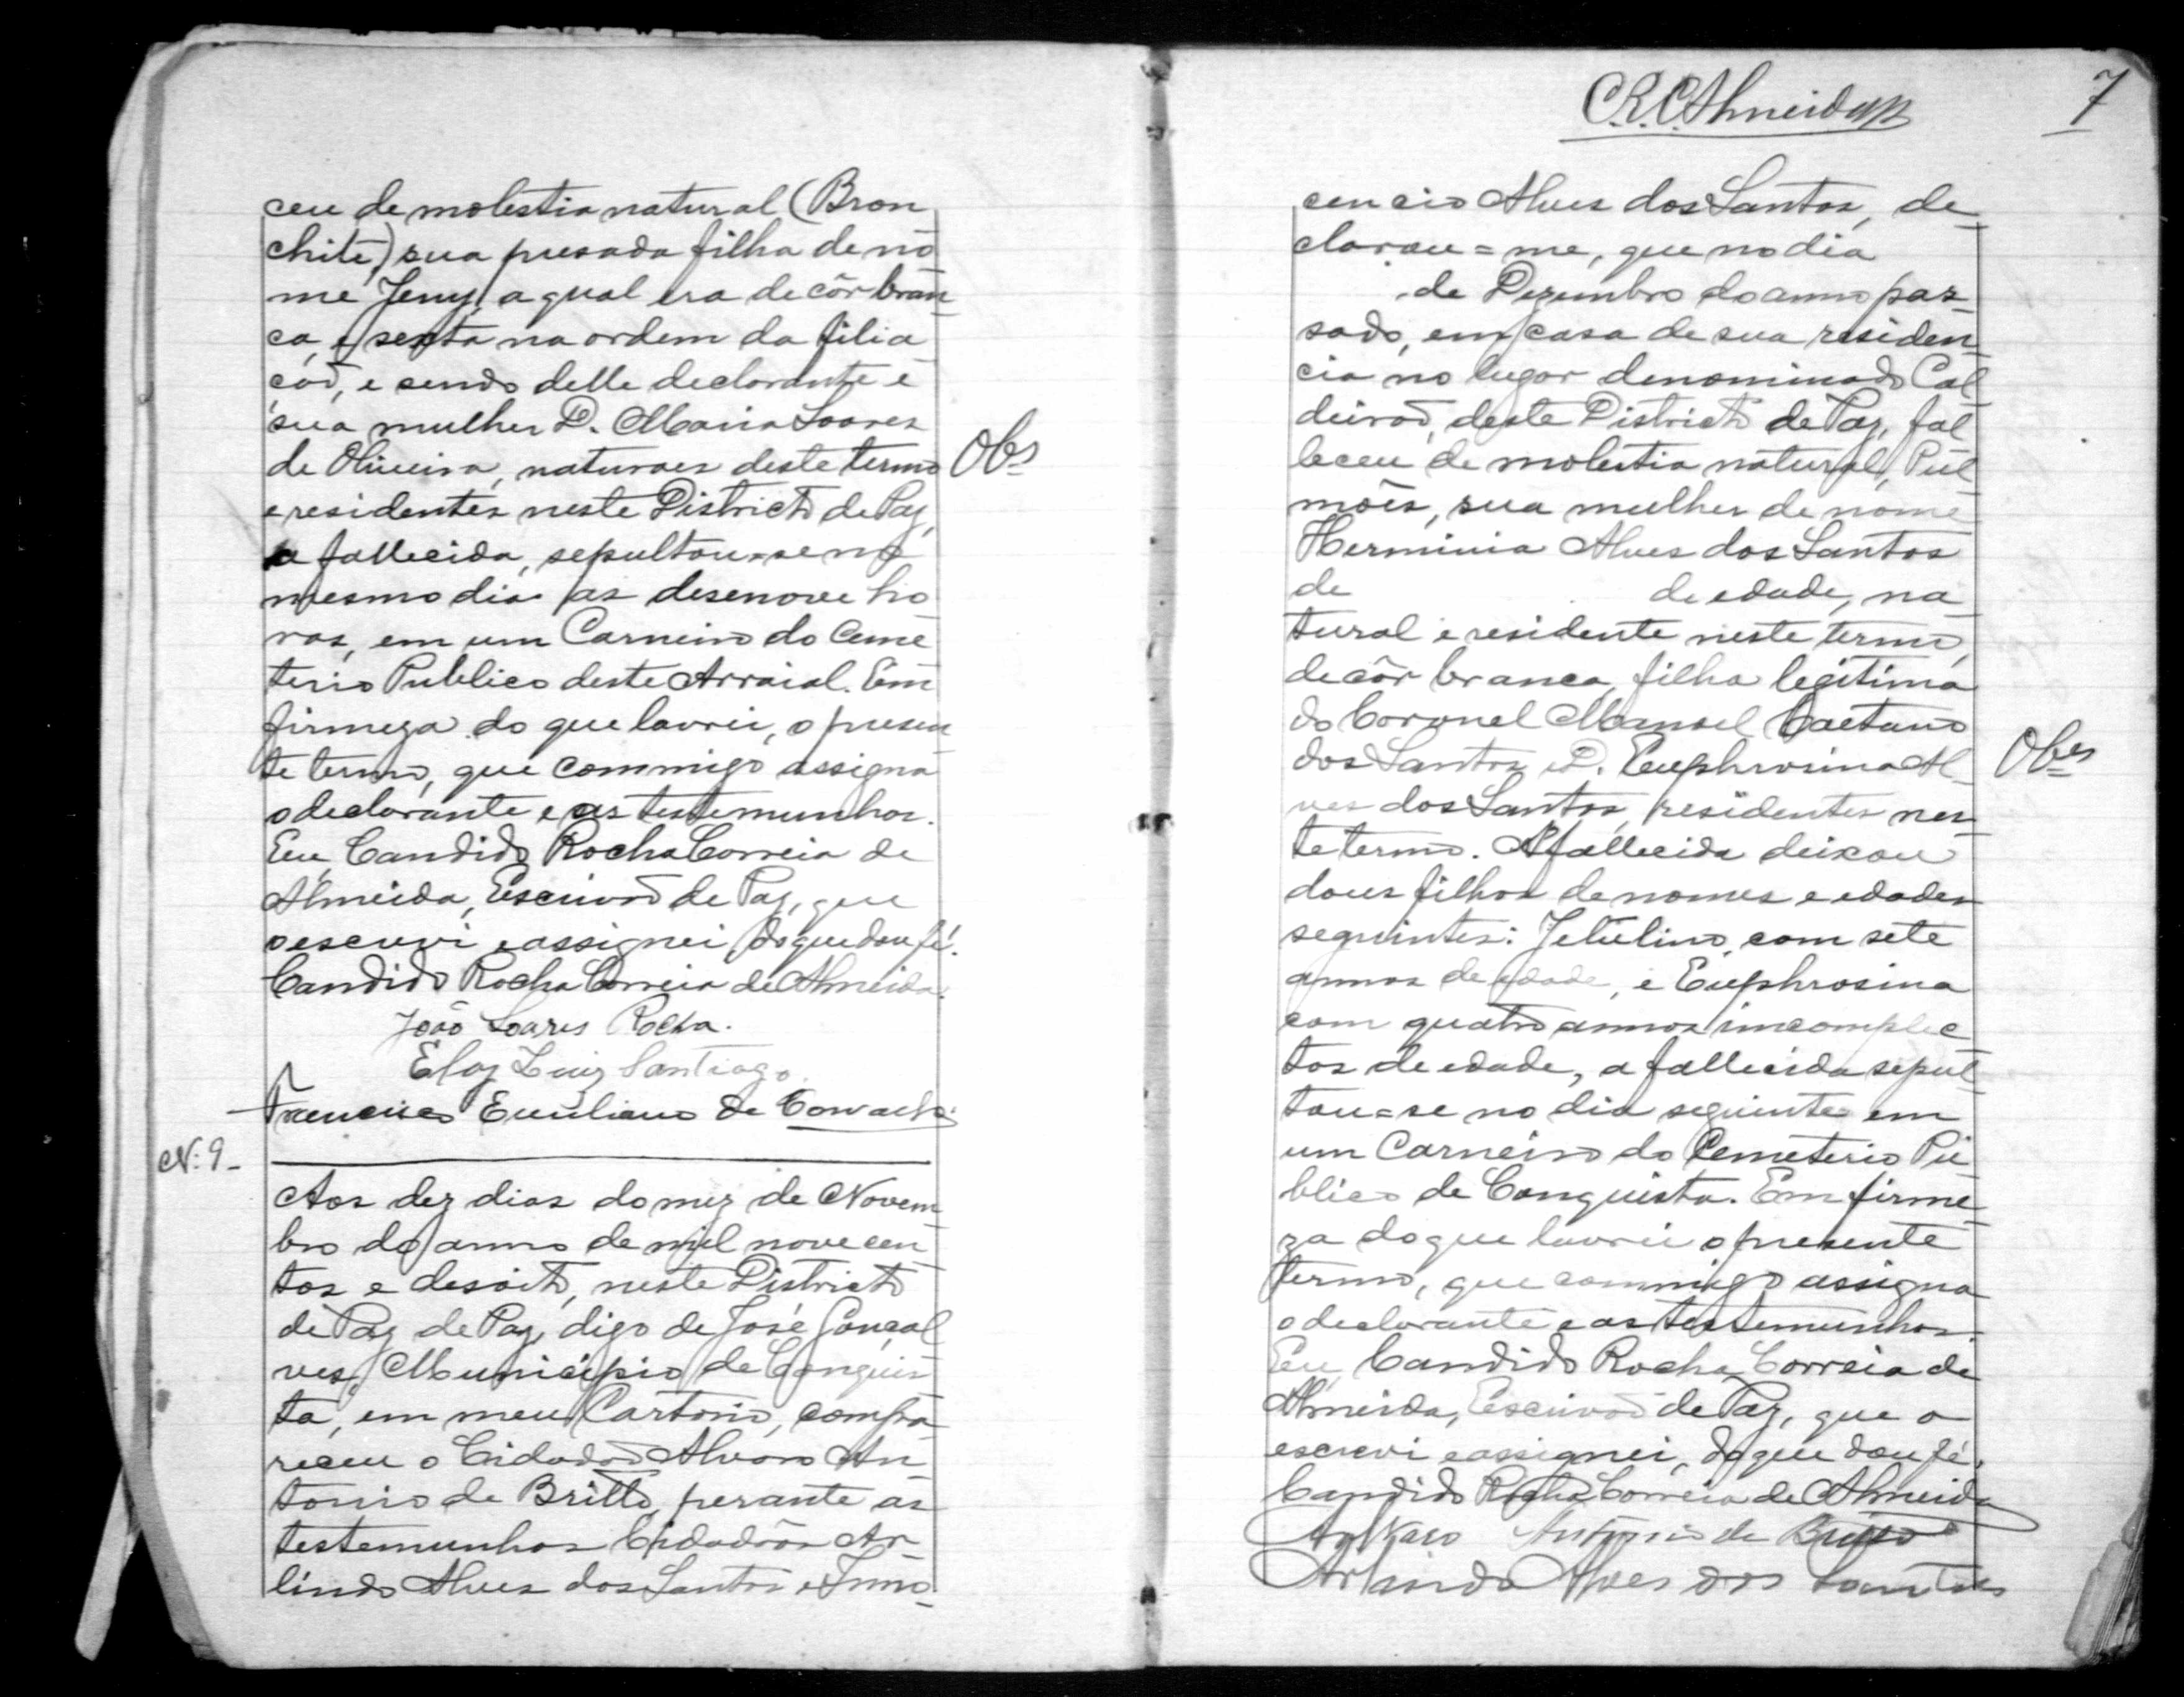 ceu de molestia natural (Bron
chite) sua presada filha de no
me Jeny, a qual era de côr bran
ca, e sexta na ordem da filia
ção, e sendo delle declarante e
sua mulher D. Maria Soares
de Oliveira, naturaes deste termo
e residentes neste Districto de Paz,
a fallecida, sepultou-se no
mesmo dia as desenove ho
ras, em um Carneiro do Ceme
terio Publico deste Arraial. Em
firmeza do que lavrei, o presen
te termo, que commigo assigna
o declarante e as testemunhas.
Eu, Candido Rocha Correia de
Almeida, Escrivaõ de Paz, que
o escrevi e assignei, do que dou fé.
Candido Rocha Correia de Almeida.
João Soares Rocha.
Eloy Luiz Santiago.
Francisco Emiliano de
Obs
N: 9_
Aos dez dias do mez de Novem
bro do anno de mil novecen
tos e desoito, neste Districto
de Paz de Paz, digo de José Gonçal
ves, Municipio de Conquis
ta, em meu Cartorio, compa
receu o Cidadaõ Alvaro An
tonio de Britto, perante as
testemunhas Cidadãos Ar
lindo Alves dos Santos e Inno
C.R.C.Almeida
7
cencio Alves dos Santos, de
clarou=me, que no dia
de Dezembro do anno pas
sado, em casa de sua residen
cia no lugar denominado Cal
deiraõ, deste Districto de Paz, fal
leceu de molestia natural, Pul
mões, sua mulher de nome
Herminia Alves dos Santos
de de edade, na
tural e residente neste termo,
de côr branca, filha legitima
do Coronel Manoel Caetano
dos Santos e D. Euphrosina Al
ves dos Santos, residentes nes
te termo. A fallecida deixou
dous filhos de nomes e edades
seguintes: Jetulino, com sete
annos de edade, e Euphrosina
com quatro annos imcomplec
tos de edade, a fallecida sepul
tou=se no dia seguinte em
um Carneiro do Cemeterio Pu
blico de Conquista. Em firme
za do que lavrei o presente
termo, que commigo assigna
o declarante e as testemunhas.
Eu, Candido Rocha Correia de
Almeida, Escrivaõ de Paz, que o
escrevi e assignei, do que dou fé.
Candido Rocha Correia de Almeida
Alvaro Antonio de Britto
Arlindo Alves dos Santos
Obs